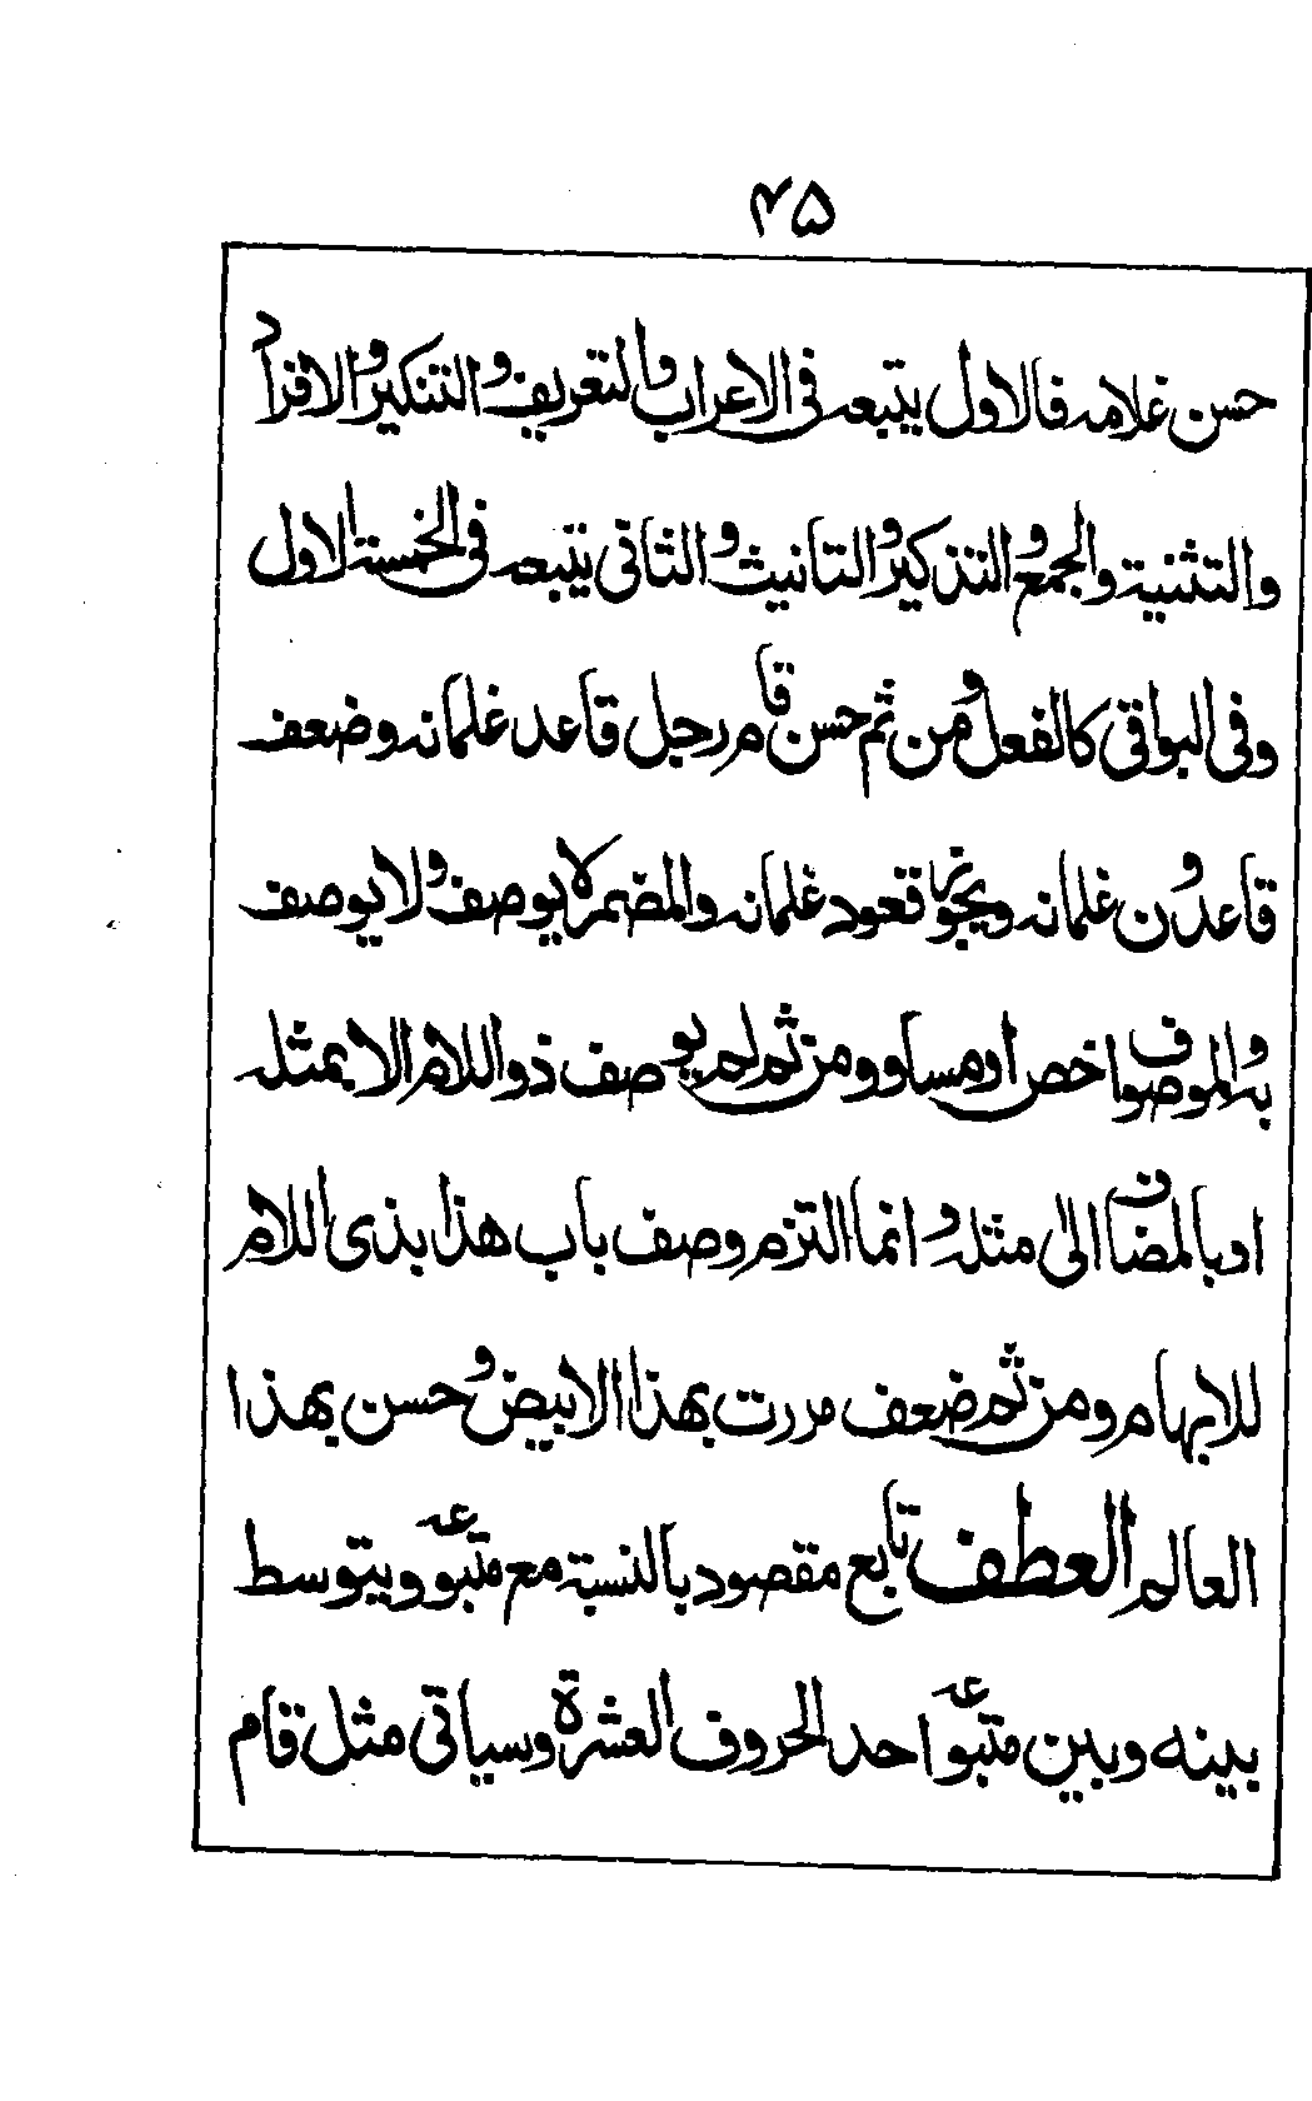 ۴۵
حسن غلامه فالاول يتبعه فى الاعراب والتعريف والتنكير والافراد
والتثنية والجمع والتذكير والتانيث والثانى يتبعه فى الخمسة الاول
وفى البواقى كالفعل ومن ثم حسن قام رجل قاعد غلمانه وضعف
قاعدون غلمانه ويجوز قعود غلمانه والمضمر لا يوصف ولا يوصف
به والموصوف اخص او مساو ومن ثم لم يوصف ذو اللام الا بمثله
او بالمضاف الى مثله وانما التزم وصف باب هذا بذى اللام
للابهام ومن ثم ضعف مررت بهذا الابيض وحسن بهذا
العالم العطف تابع مقصود بالنسبة مع متبوعه ويتوسط
بينه وبين متبوعه احد الحروف العشرة وسياتى مثل قام